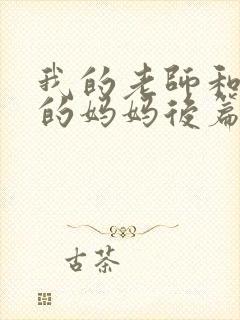 我的老師和
的妈妈後篇
古茶